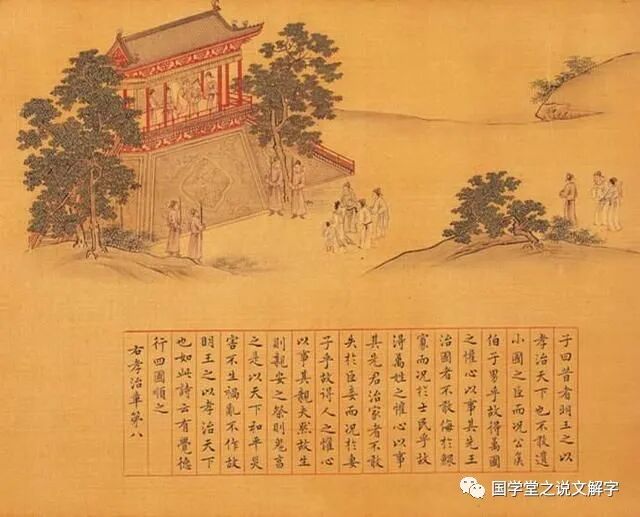 子曰昔者明王之以
孝治天下也不敢遺
小國之臣而况公侯
伯子男乎故得萬國
之懽心以事其先王
治國者不敢侮於鰥
寡而况於士民乎故
得萬姓之懽心以事
其先君治家者不敢
失於臣妾而况於妻
子乎故得人之懽心
以事其親夫然故生
則親安之祭則鬼享
之是以天下和平災
害不生禍亂不作故
明王之以孝治天下
也如此詩云有覺德
行四國順之
右孝治章第八
国学堂之说文解字